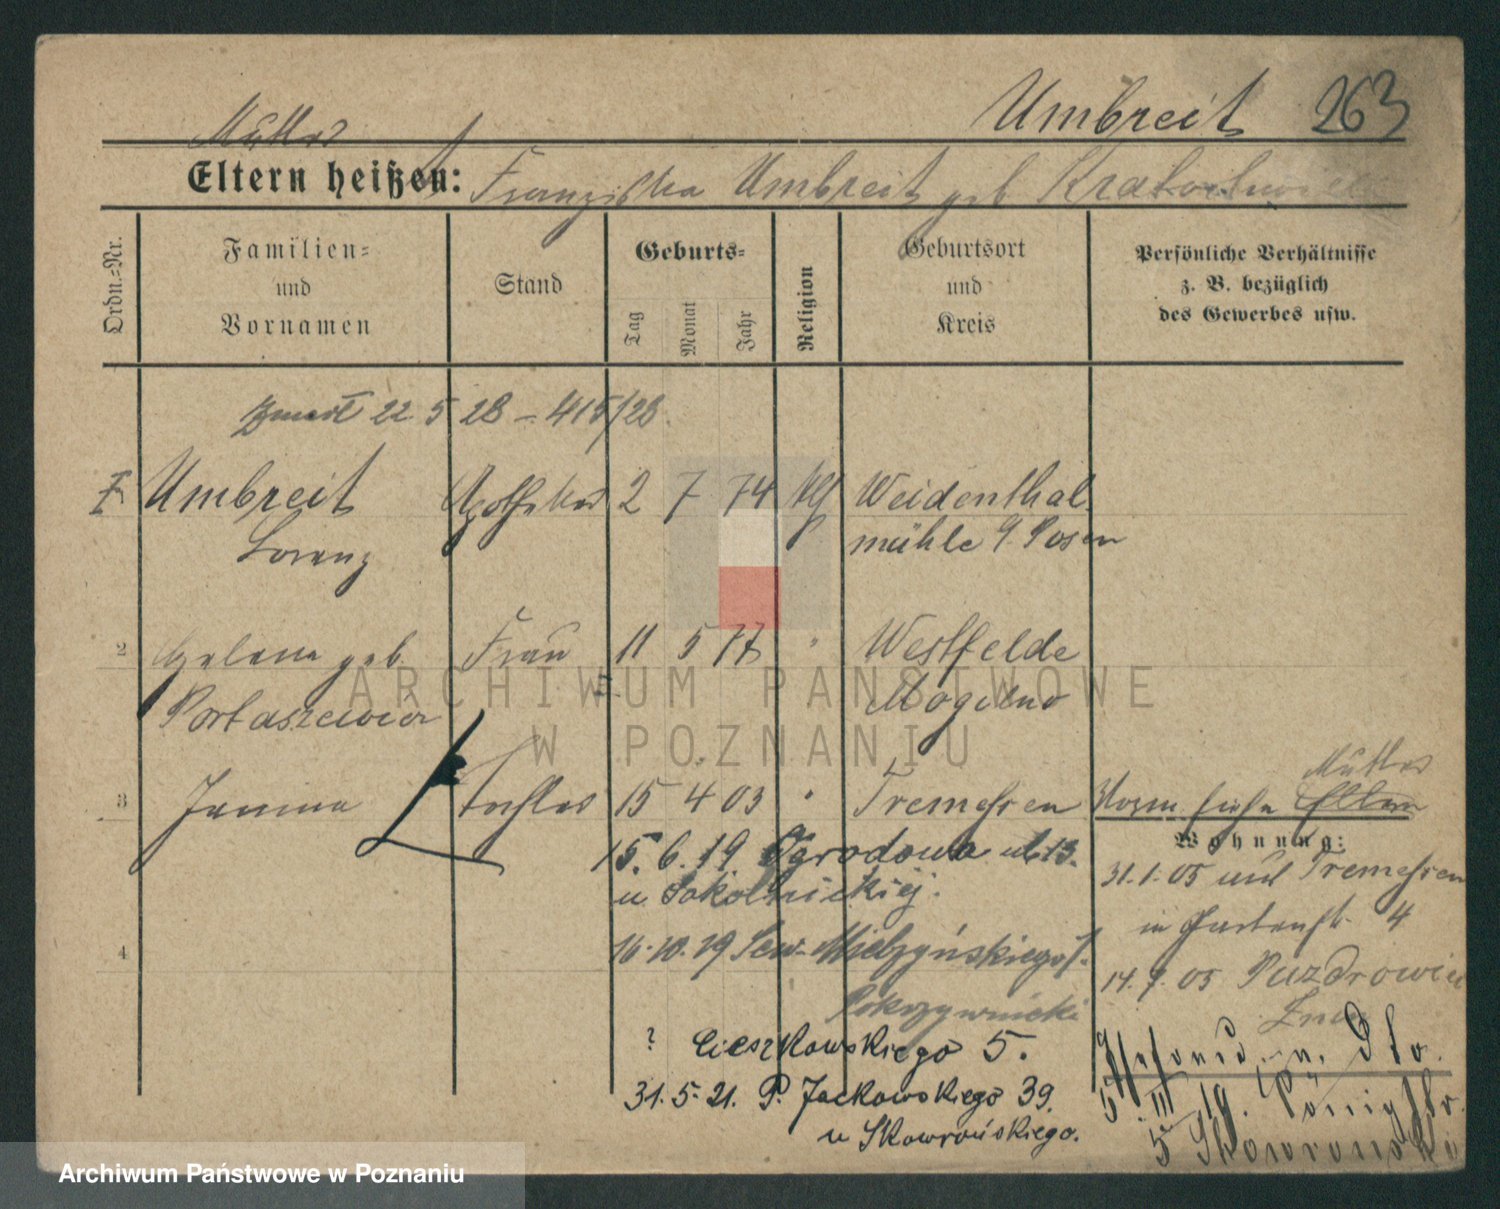 Umbreit 263
Mutter
Eltern heißen: Franziska Umbreit geb
Ordn.=Nr.
Familien=
und
Vornamen
Stand
Geburts=
Tag
Monat
Jahr
Religion
Geburtsort
und
Kreis
Persönliche Verhältnisse
z. B. bezüglich
des Gewerbes usw.
22 5 28 – 415/28
Umbreit Apotheker 2 7 74 Weidenthal
Lorenz mühle Posen
2 Helena geb. Frau 11 5 77 " Westfelde
Mogilno
Mutter
3 Janina Tochter 15 4 03 " Tremessen Vorm. siehe Eltern
Wohnung:
15. 6. 19 Ogrodowa ul. 13.
u Sokolnickiej.
31.1.05 auf Tremessen
in Gartenstr 4
4
16.10.19 Sew. Mielzyńskiego
14. 05
Pokrzywnicki
? Cieszkowskiego 5.
31.5.21. P. Jackowskiego 39.
u Skowrońskiego.
5 III 19.
5 Skowronski
ARCHIWUM PAŃSTWOWE
W POZNANIU
Archiwum Państwowe w Poznaniu